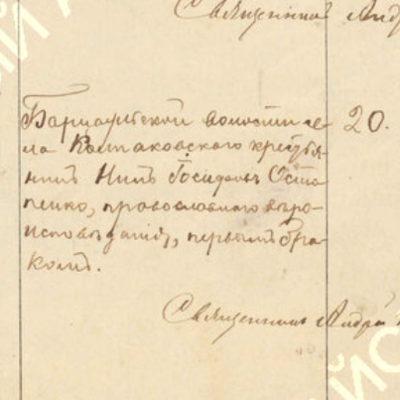 Священникъ Андр
Барчаутской волости се-
ла Колпаковскаго крестья-
нинъ Осто
пенко, православнаго веро-
исповеданія, первымъ бра-
комъ.
20.
Священникъ Андрей